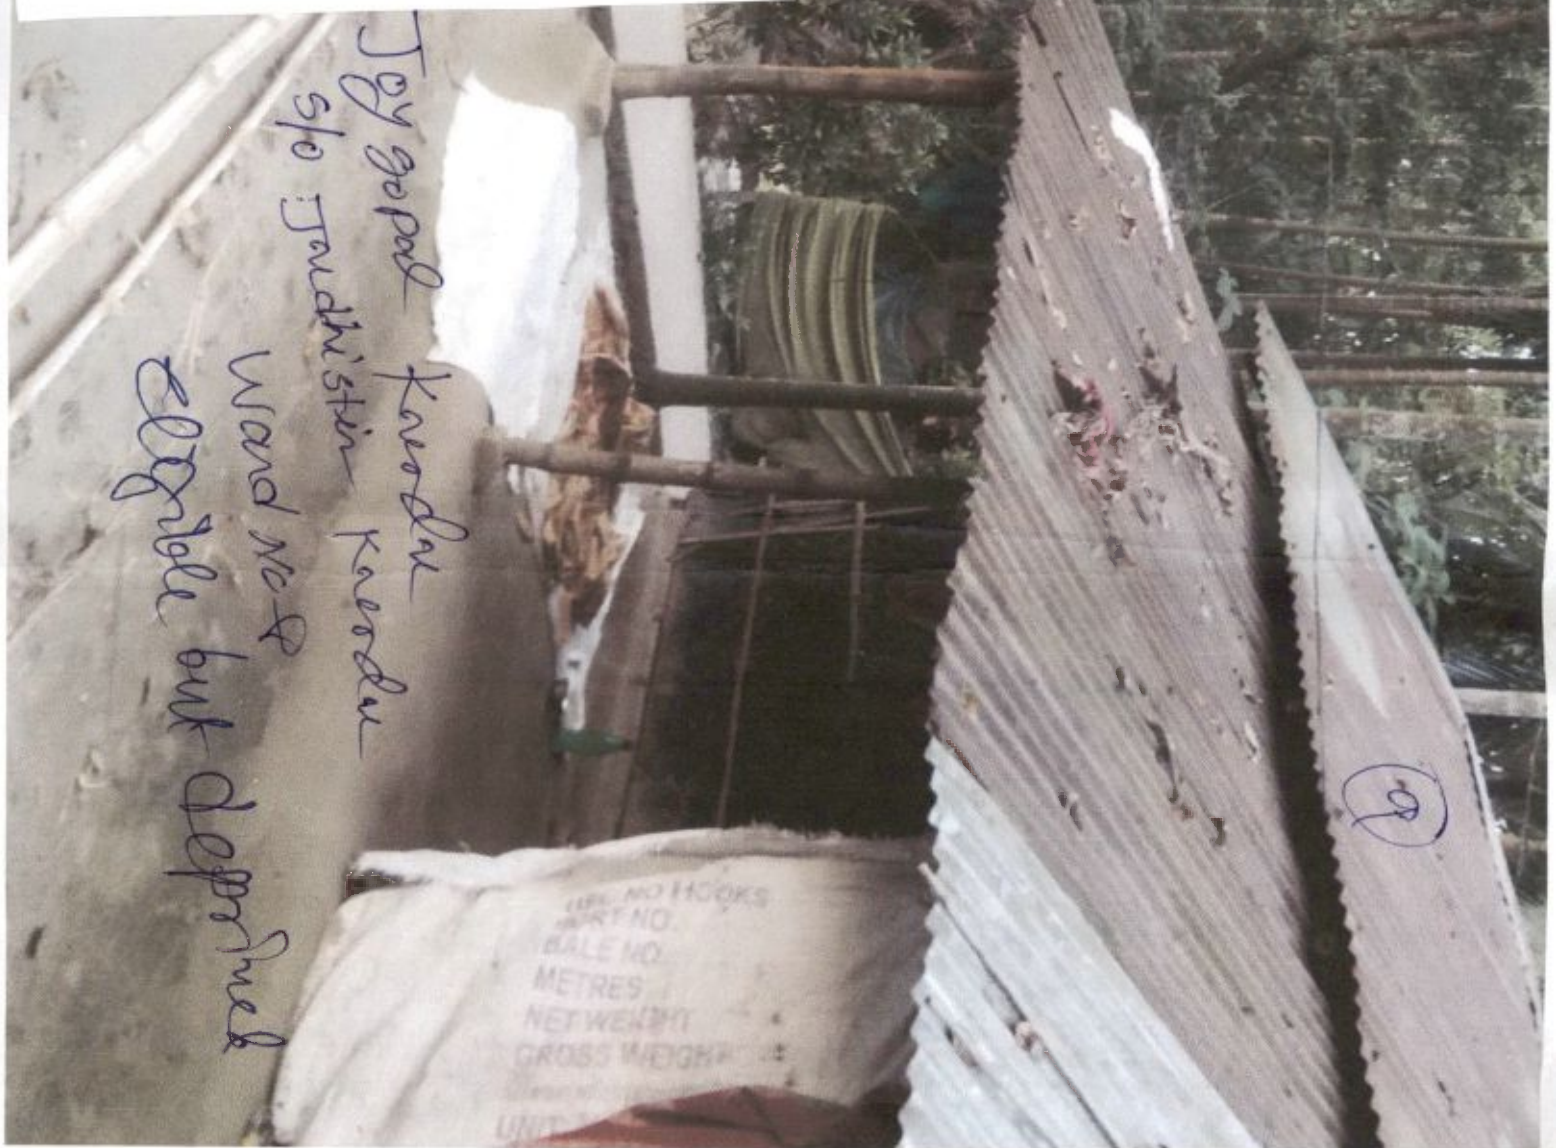 Joy gopal Karodu
S/o Joudhister Karodu
Ward No 8
Eligible but deprived
9
USE NO HOOKS
SORT NO.
BALE NO.
METRES
NET WEIGHT
GROSS WEIGHT
UNIT